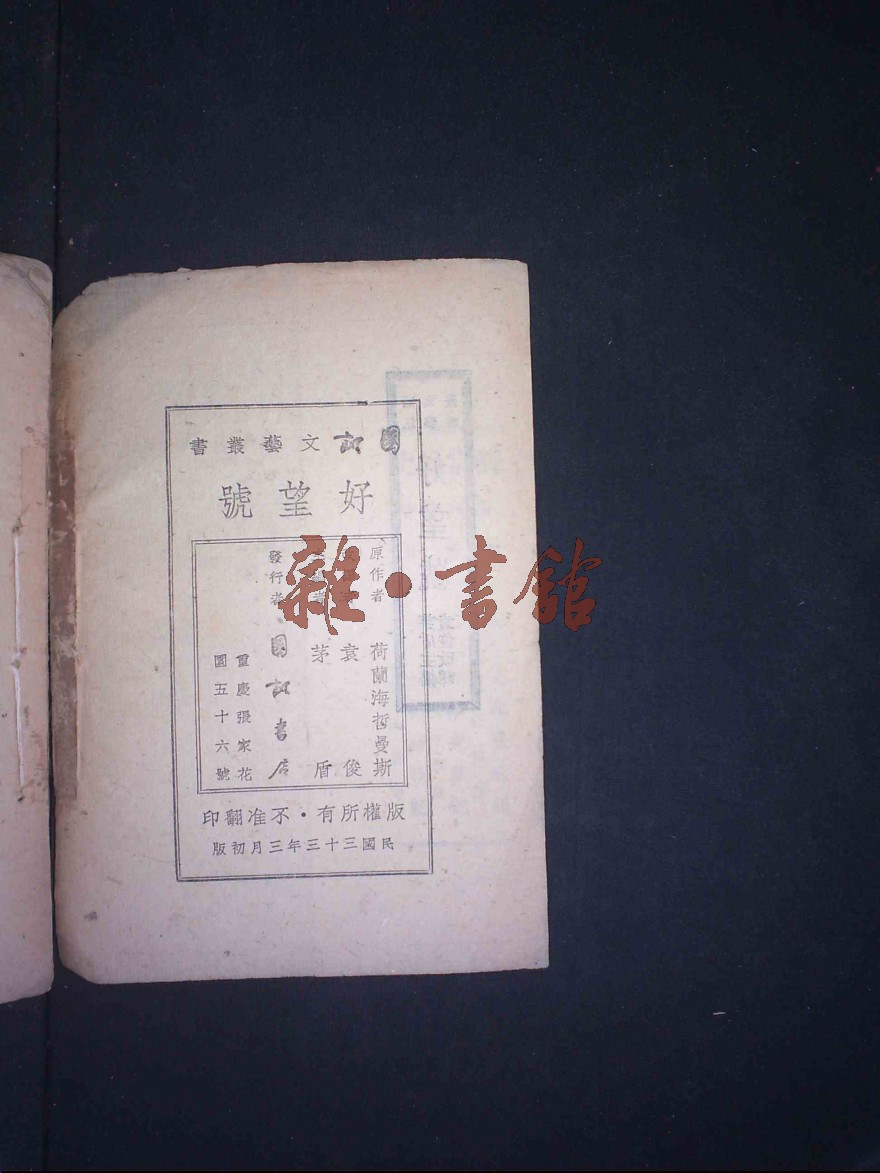 國訊文藝叢書
好望號
原作者 荷蘭海哲曼斯
袁俊
茅盾
發行者 國訊書店
重慶張家花
園五十六號
版權所有・不准翻印
民國三十三年三月初版
雜・書館